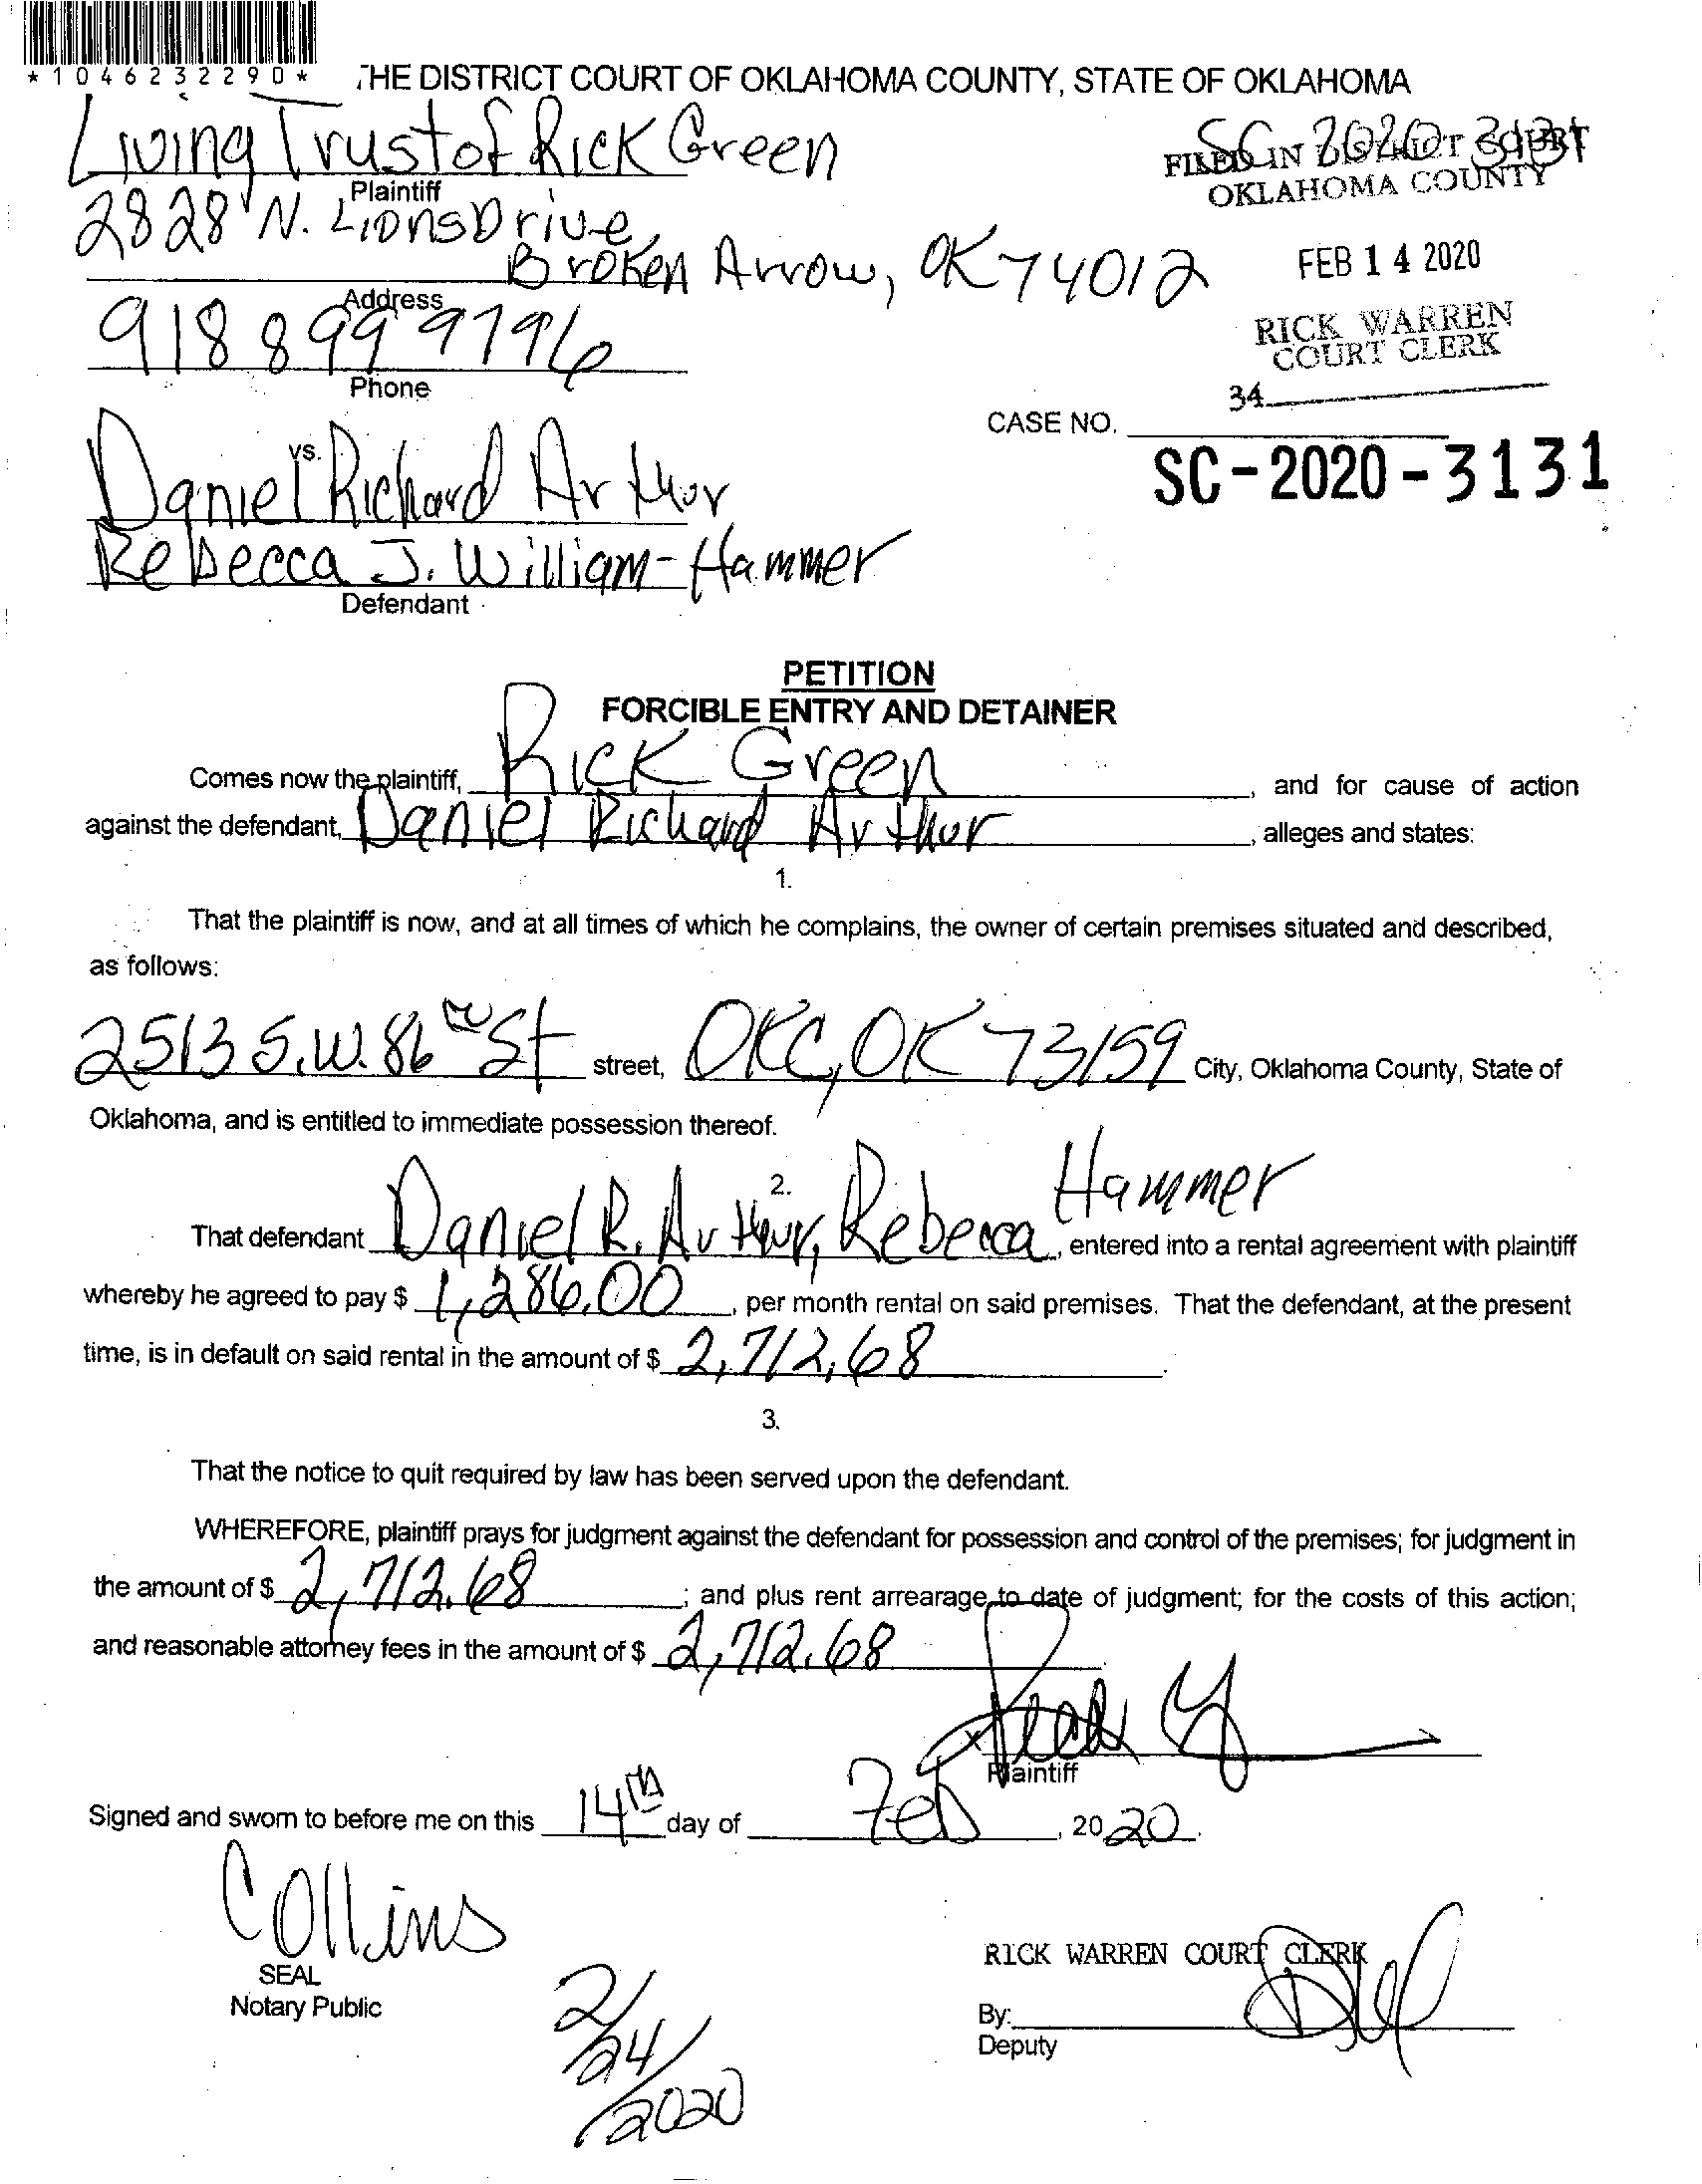 *1046232290*
THE DISTRICT COURT OF OKLAHOMA COUNTY, STATE OF OKLAHOMA
Living Trust of Rick Green
Plaintiff
SC-2020-3131
FILED IN DISTRICT COURT
OKLAHOMA COUNTY
2828 N. Lions Drive,
Broken Arrow, OK 74012
Address
FEB 14 2020
RICK WARREN
COURT CLERK
918 899 9796
Phone
34
CASE NO.
SC-2020-3131
vs.
Daniel Richard Arthur
Rebecca J. William-Hammer
Defendant
PETITION
FORCIBLE ENTRY AND DETAINER
Comes now the plaintiff, Rick Green, and for cause of action
against the defendant, Daniel Richard Arthur, alleges and states:
1.
That the plaintiff is now, and at all times of which he complains, the owner of certain premises situated and described,
as follows:
2513 S.W. 86 St street, OKC, OK 73159 City, Oklahoma County, State of
Oklahoma, and is entitled to immediate possession thereof.
2.
That defendant Daniel R. Arthur, Rebecca Hammer, entered into a rental agreement with plaintiff
whereby he agreed to pay $ 1,286.00, per month rental on said premises. That the defendant, at the present
time, is in default on said rental in the amount of $ 2,712.68.
3.
That the notice to quit required by law has been served upon the defendant.
WHEREFORE, plaintiff prays for judgment against the defendant for possession and control of the premises; for judgment in
the amount of $ 2,712.68; and plus rent arrearage to date of judgment; for the costs of this action;
and reasonable attorney fees in the amount of $ 2,712.68
X
Plaintiff
Signed and sworn to before me on this 14th day of Feb, 2020.
Collins
SEAL
Notary Public
2/24/2020
RICK WARREN COURT CLERK
By:
Deputy